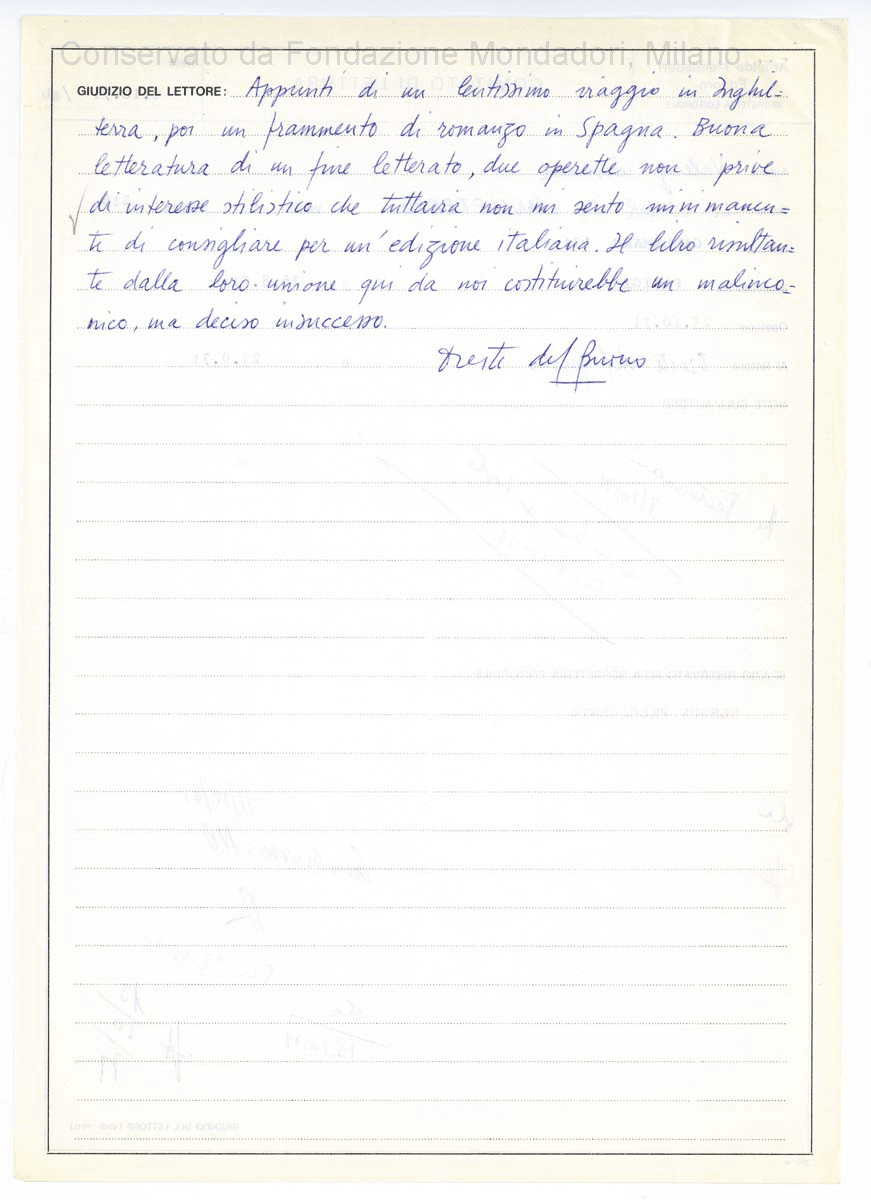 Conservato da Fondazione Mondadori, Milano
GIUDIZIO DEL LETTORE: Appunti di un lentissimo viaggio in Inghil=
terra, poi un frammento di romanzo in Spagna. Buona
letteratura di un fine letterato, due operette non prive
di interesse stilistico che tuttavia non mi sento minimamen=
te di consigliare per un'edizione italiana. Il libro risultan=
te dalla loro unione qui da noi costituirebbe un malinco=
nico, ma deciso insuccesso.
Oreste del Buono